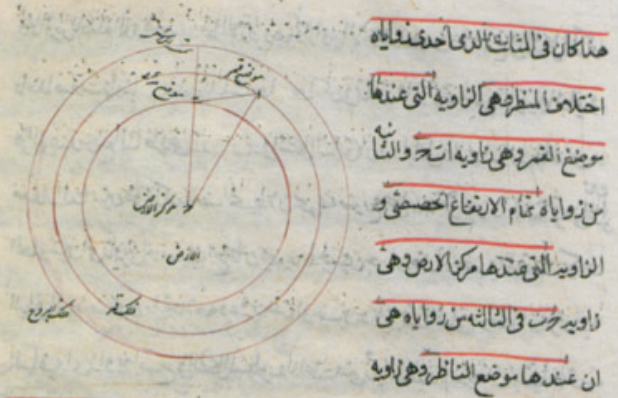 هذا كان فى المثلث الذى احدى زواياه
اختلاف المنظر فهى الزاويه التى عندها
موضع القمر وهى زاويه والثانيه
من زواياه تمام الارتفاع الحقيقى و
الزاويه التى عندها مركز الارض وهى
زاويه فى الثالثه من زواياه هى
ان عندها موضع الناظر وهى زاويه
موضع قمر
مركز الارض
الارض
فلك قمر
فلك البروج